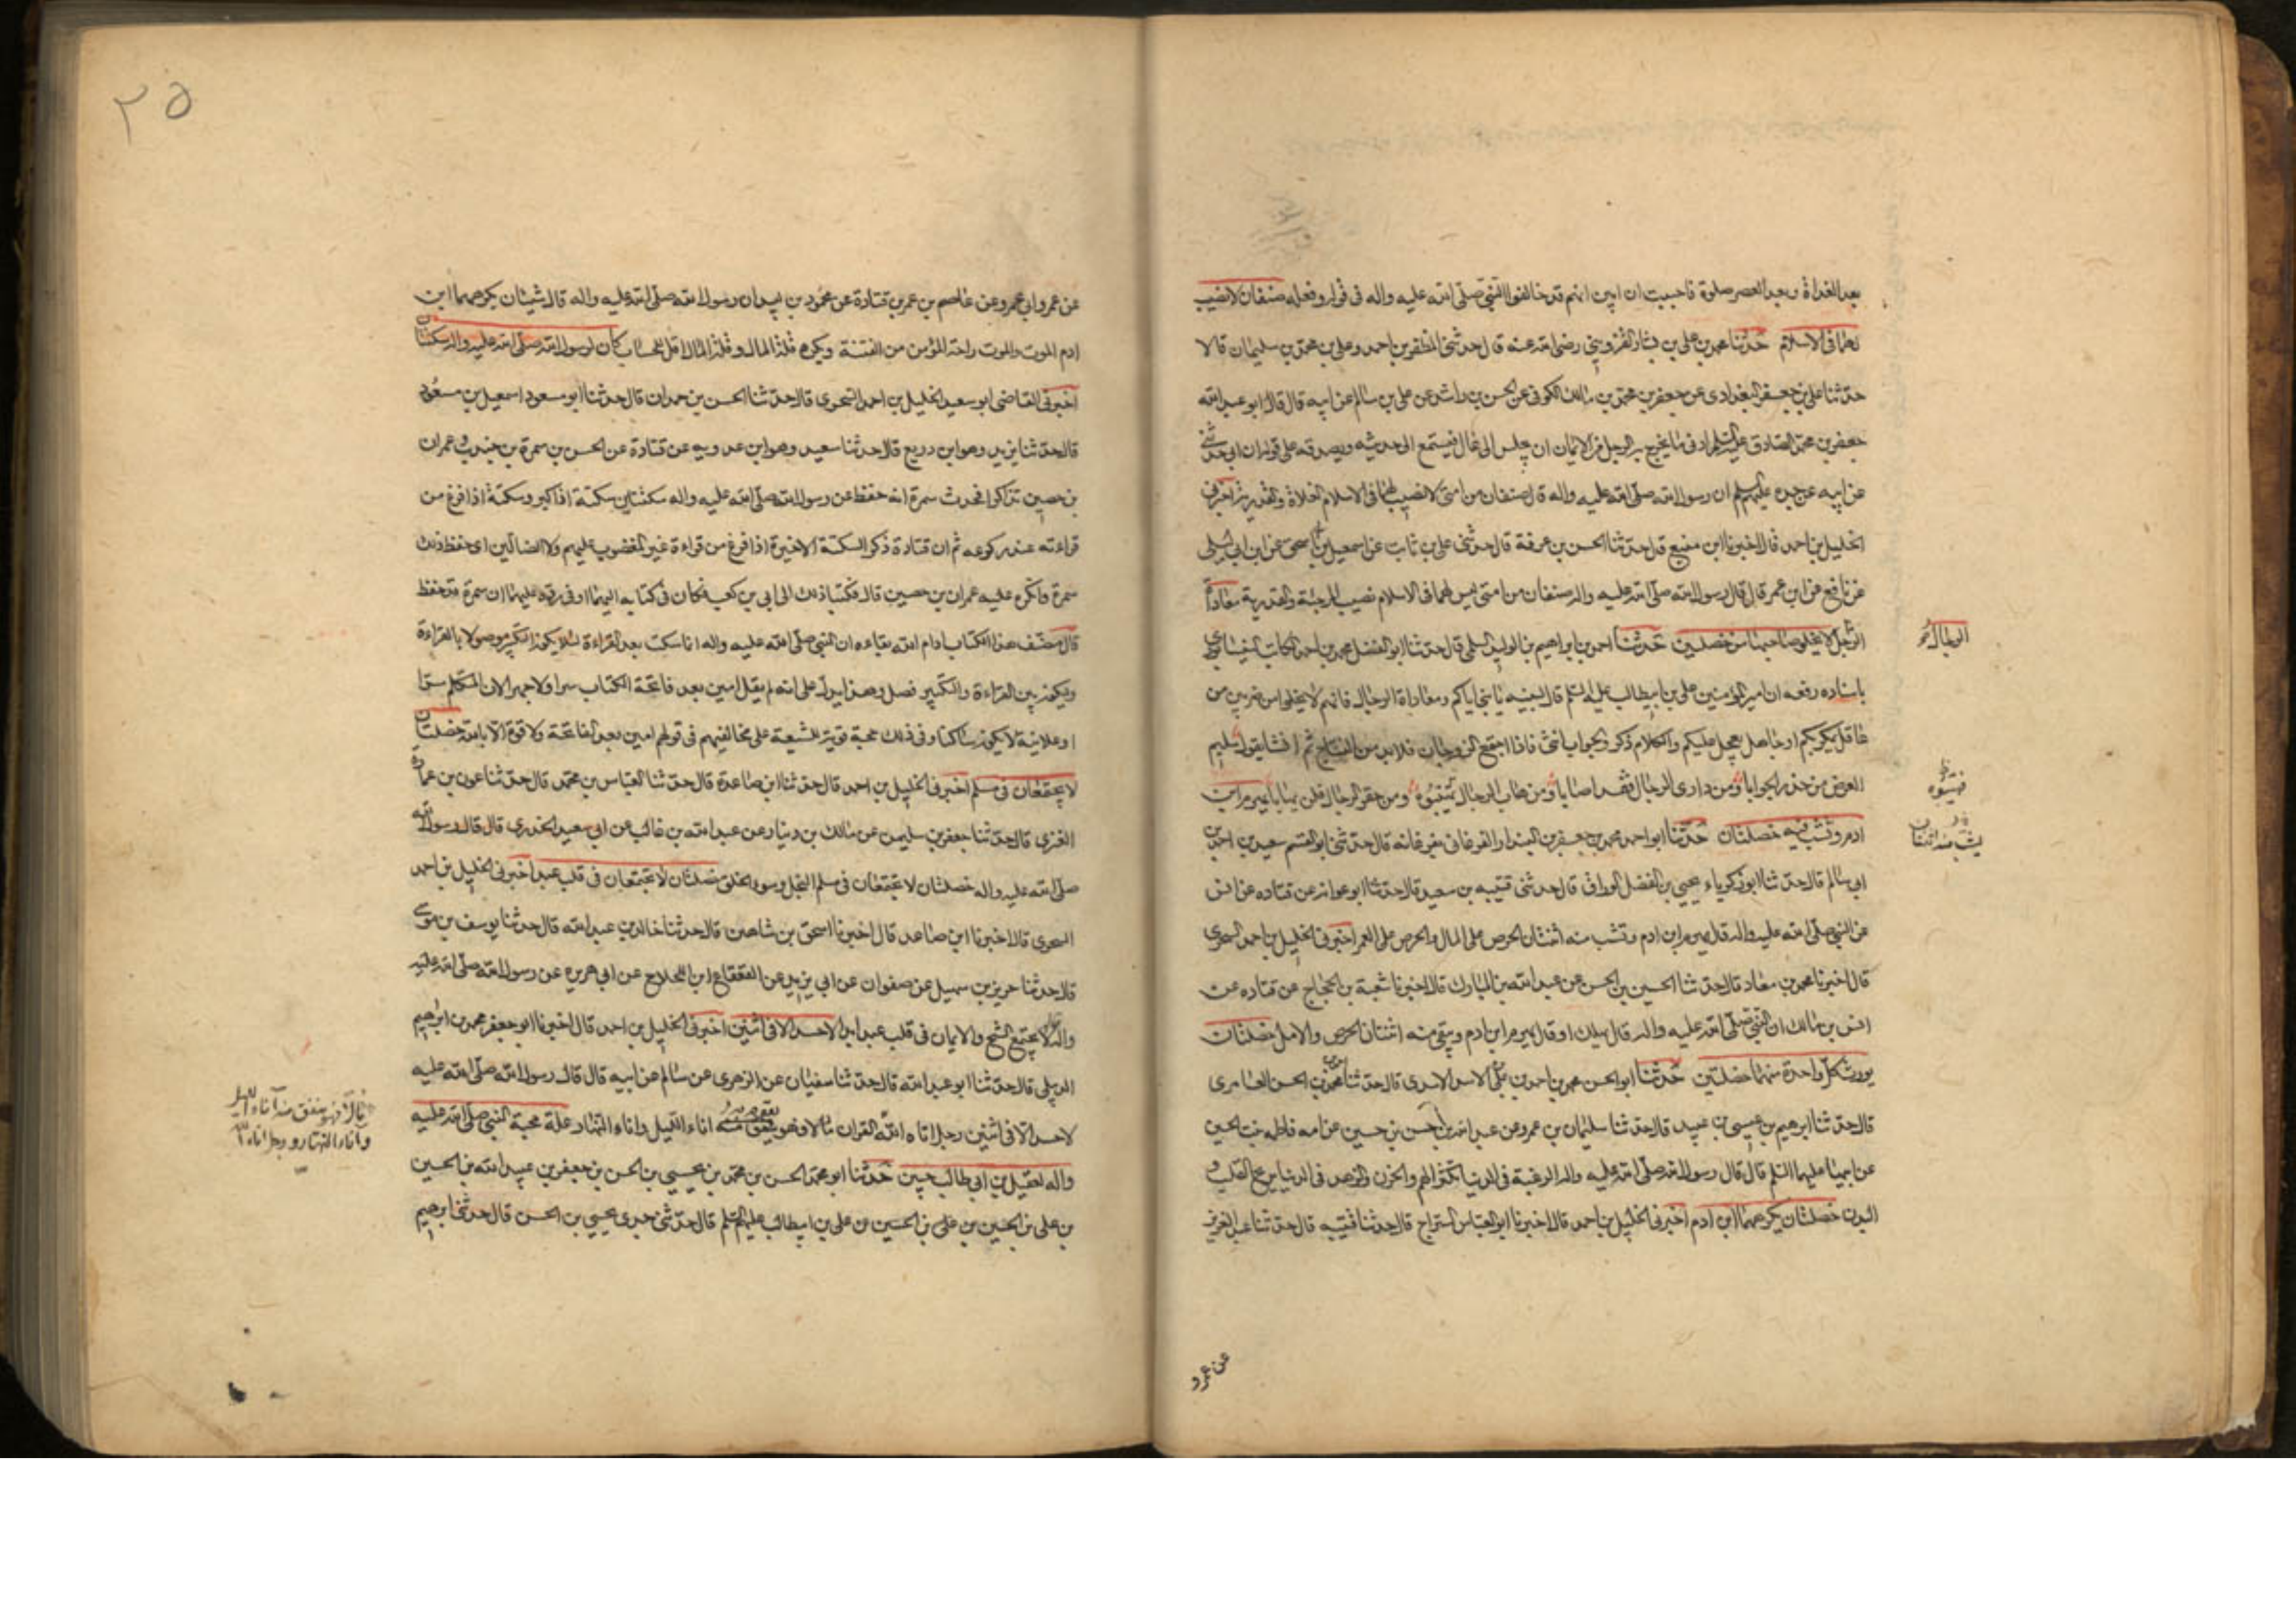 بعد الغداة وبعد العصر صلوة فاحببت ان ابين انهم قد خالفوا النبي صلى الله عليه واله في قوله وفعله صنفان لا نصيب
لهما في الاسلام حدثنا محمد بن علي بن بشار القزويني رضي الله عنه قال حدثني المظفر بن احمد وعلي بن محمد بن سليمان قالا
حدثنا علي بن جعفر البغدادي عن جعفر بن محمد بن مالك الكوفي عن الحسن بن راشد عن علي بن سالم عن ابيه قال قال ابو عبد الله
جعفر بن محمد الصادق عليه السلم ادنى ما يخرج به الرجل من الايمان ان يجلس الى غال فيستمع الى حديثه ويصدقه على قوله ان ابي حدثني
عن ابيه عن جده عليهم السلم ان رسول الله صلى الله عليه واله قال صنفان من امتي لا نصيب لهما في الاسلام الغلاة والقدرية اخبرني
الخليل بن احمد قال اخبرنا ابن منيع قال حدثنا الحسن بن عرفة قال حدثني علي بن ثابت عن اسمعيل بن ابي اسحق عن ابن ابي ليلى
عن نافع عن ابن عمر قال قال رسول الله صلى الله عليه واله صنفان من امتي ليس لهما في الاسلام نصيب المرجئة والقدرية معاداة
الرجل لا يخلو صاحبها من خصلتين حدثنا احمد بن ابراهيم بن الوليد السلمي قال حدثنا ابو الفضل محمد بن احمد الكاتب النيشابوري
باسناده رفعه ان امير المؤمنين علي بن ابيطالب عليه السلم قال لبنيه يا بني اياكم ومعاداة الرجال فانهم لا يخلوا من ضربين من
عاقل يمكر بكم او جاهل يعجل عليكم والكلام ذكر والجواب انثى فاذا اجتمع الزوجان فلا بد من النتاج ثم انشا يقول سليم
العرض من حذر الجوابا ومن دارى الرجال فقد اصابا ومن هاب الرجال تهيبوه ومن حقر الرجال فلن يهابا يهرم ابن
ادم وتشب فيه خصلتان حدثنا ابو احمد محمد بن جعفر البندار الفرغاني بفرغانه قال حدثني ابو القسم سعيد بن احمد بن
ابي سالم قال حدثنا ابو زكرياء يحيى بن الفضل الوراق قال حدثني قتيبه بن سعيد قال حدثنا ابو عوانه عن قتاده عن انس
عن النبي صلى الله عليه واله قال يهرم ابن ادم وتشب منه اثنتان الحرص على المال والحرص على العمر اخبرني الخليل بن احمد السجزي
قال اخبرنا محمد بن معاد قال حدثنا الحسين بن الحسن عن عبد الله بن المبارك قال اخبرنا شعبة بن الحجاج عن قتاده عن
انس بن مالك ان النبي صلى الله عليه واله قال يهلك او قال يهرم ابن ادم ويبقى منه اثنتان الحرص والامل خصلتان
يورث كل واحدة منهما خصلتين حدثنا ابو الحسن محمد بن احمد بن علي الاسدي قال حدثنا محمد بن الحسن العامري
قال حدثنا ابرهيم بن عيسى بن عبيد قال حدثنا سليمان بن عمرو عن عبد الله بن الحسن بن حسين عن امه فاطمه بنت الحسين
عن ابيها عليهما السلم قال قال رسول الله صلى الله عليه واله الرغبة في الدنيا تكثر الهم والحزن والزهد في الدنيا يريح القلب و
البدن خصلتان يكرههما ابن ادم اخبرني الخليل بن احمد قال اخبرنا ابو العباس السراج قال حدثنا قتيبه قال حدثنا عبد العزيز
عن عمرو
الرجال
فهيبوه
يشب منه اثنتان
٢٥
عن عمرو ابي عمرو عن عاصم بن عمر بن قتادة عن محمود بن لبيد ان رسول الله صلى الله عليه واله قال شيئان يكرههما ابن
ادم الموت والموت راحة المؤمن من الفتنة ويكره قلة المال وقلة المال اقل للحساب كان لرسول الله صلى الله عليه واله سكتتان
اخبرني القاضي ابو سعيد الخليل بن احمد السجزي قال حدثنا الحسن بن حمدان قال حدثنا ابو مسعود اسمعيل بن مسعود
قال حدثنا يزيد وهو ابن زريع قال حدثنا سعيد وهو ابن عروبه عن قتادة عن الحسن بن سمرة بن جندب وعمران
بن حصين تذاكرا فحدث سمرة انه حفظ عن رسول الله صلى الله عليه واله سكتتين سكتة اذا كبر وسكتة اذا فرغ من
قراءته عند ركوعه ثم ان قتادة ذكر السكتة الاخيرة اذا فرغ من قراءة غير المغضوب عليهم ولا الضالين اى حفظ ذلك
سمرة وانكره عليه عمران بن حصين قال فكتبا ذلك الى ابي بن كعب فكان في كتابه اليهما او في رده عليهما ان سمرة قد حفظ
قال مصنف هذا الكتاب ادام الله بقاءه ان النبي صلى الله عليه واله انما سكت بعد القراءة لئلا يكون التكبير موصولا بالقراءة
ويكون بين القراءة والتكبير فصل وهذا يدل على انه لم يقل امين بعد فاتحة الكتاب سرا ولا جهرا لان المتكلم سرا
او علانية لا يكون ساكتا وفي ذلك حجة قوية للشيعة على مخالفيهم في قولهم امين بعد الفاتحة ولا قوة الا بالله خصلتان
لا يجتمعان في مسلم اخبرني الخليل بن احمد قال حدثنا ابن صاعدة قال حدثنا العباس بن محمد قال حدثنا عون بن عمارة
العنزي قال حدثنا جعفر بن سليمن عن مالك بن دينار عن عبد الله بن غالب عن ابي سعيد الخدري قال قال رسول الله
صلى الله عليه واله خصلتان لا تجتمعان في مسلم البخل وسوء الخلق خصلتان لا تجتمعان في قلب عبد اخبرني الخليل بن احمد
السجزي قال اخبرنا ابن صاعد قال اخبرنا اسحق بن شاهين قال حدثنا خالد بن عبد الله قال حدثنا يوسف بن موسى
قال حدثنا حريز بن سهيل عن صفوان عن ابي يزيد عن القعقاع ابن اللجلاج عن ابي هريره عن رسول الله صلى الله عليه
واله قال لا يجتمع الشح والايمان في قلب عبد ابدا لا حسد الا في اثنين اخبرني الخليل بن احمد قال اخبرنا ابو جعفر محمد بن ابرهيم
الديبلي قال حدثنا ابو عبد الله قال حدثنا سفيان عن الزهري عن سالم عن ابيه قال قال رسول الله صلى الله عليه
لا حسد الا في اثنين رجل اتاه الله القران فهو يقوم به اناء الليل واناء النهار علة محبة النبي صلى الله عليه
واله لعقيل بن ابي طالب حبين حدثنا ابو محمد الحسن بن محمد بن يحيى بن الحسن بن جعفر بن عبيد الله بن الحسين
بن علي بن الحسين بن علي بن الحسين بن علي بن ابيطالب عليهم السلم قال حدثني جدي يحيى بن الحسن قال حدثني ابرهيم
مالا فهو ينفق منه آناء الليل
وآناء النهار ورجل اتاه